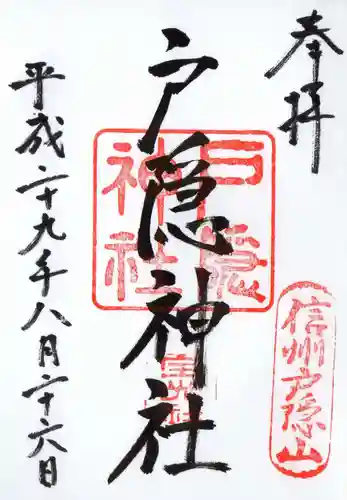 奉拝
信州戸隠山
戸隠神社
戸隠神社
宝光社
平成二十九年八月二十六日